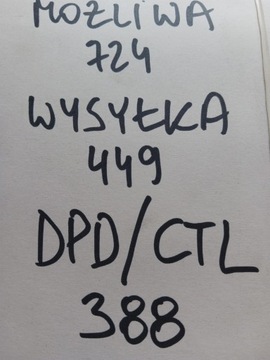 MOŻLIWA
724
WYSYŁKA
449
DPD/CTL
388